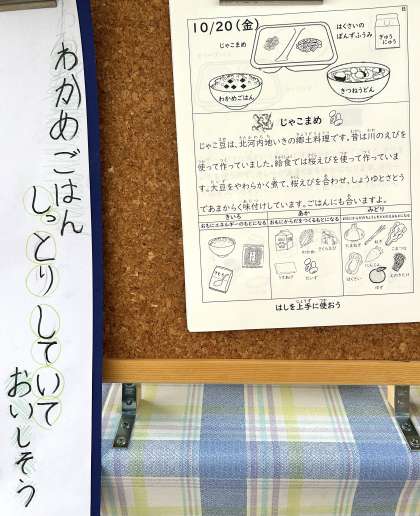 わかめごはん
しっとりしていて
おいしそう
10/20(金)
じゃこまめ
はくさいの
ぽんずふうみ
ぎゅう
にゅう
わかめごはん
きつねうどん
じゃこまめ
じゃこ豆は、北河内地いきの郷土料理です。昔は川のえびを
使って作っていました。給食では桜えびを使って作っていま
す。大豆をやわらかく煮て、桜えびを合わせ、しょうゆとさとう
であまからく味付けしています。ごはんにも合いますよ。
きいろ
あか
みどり
おもにエネルギーのもとになる
おもにからだをつくるもとになる
わかめ
さくらえび
うすあげ
だいず
たまねぎ
ねぎ
こまつな
はくさい
にんじん
ゆず
えのきたけ
はしを上手に使おう